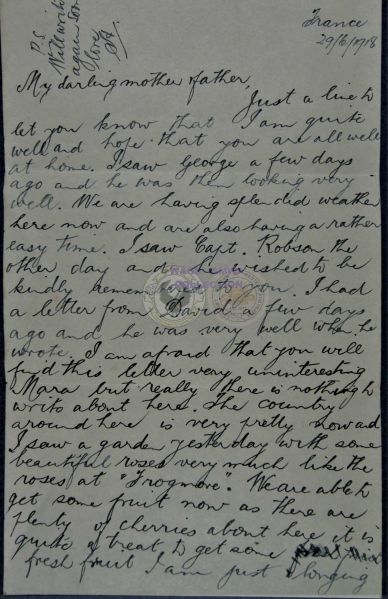 France
29/6/1918
P.S
Will write
again soon
love
My darling mother & father,
Just a line to
let you know that I am quite
well and hope that you are all well
at home. I saw George a few days
ago and he was then looking very
well. We are having splendid weather
here now and are also having a rather
easy time. I saw Capt. Robson the
other day and he wished to be
kindly remembered to you. I had
a letter from David a few days
ago and he was very well when he
wrote. I am afraid that you will
find this letter very uninteresting
Mara but really there is nothing to
write about here. The country
around here is very pretty now and
I saw a garden yesterday with some
beautiful roses very much like the
roses at "Frogmore". We are able to
get some fruit now as there are
plenty of cherries about here it is
quite a treat to get some
fresh fruit I am just longing